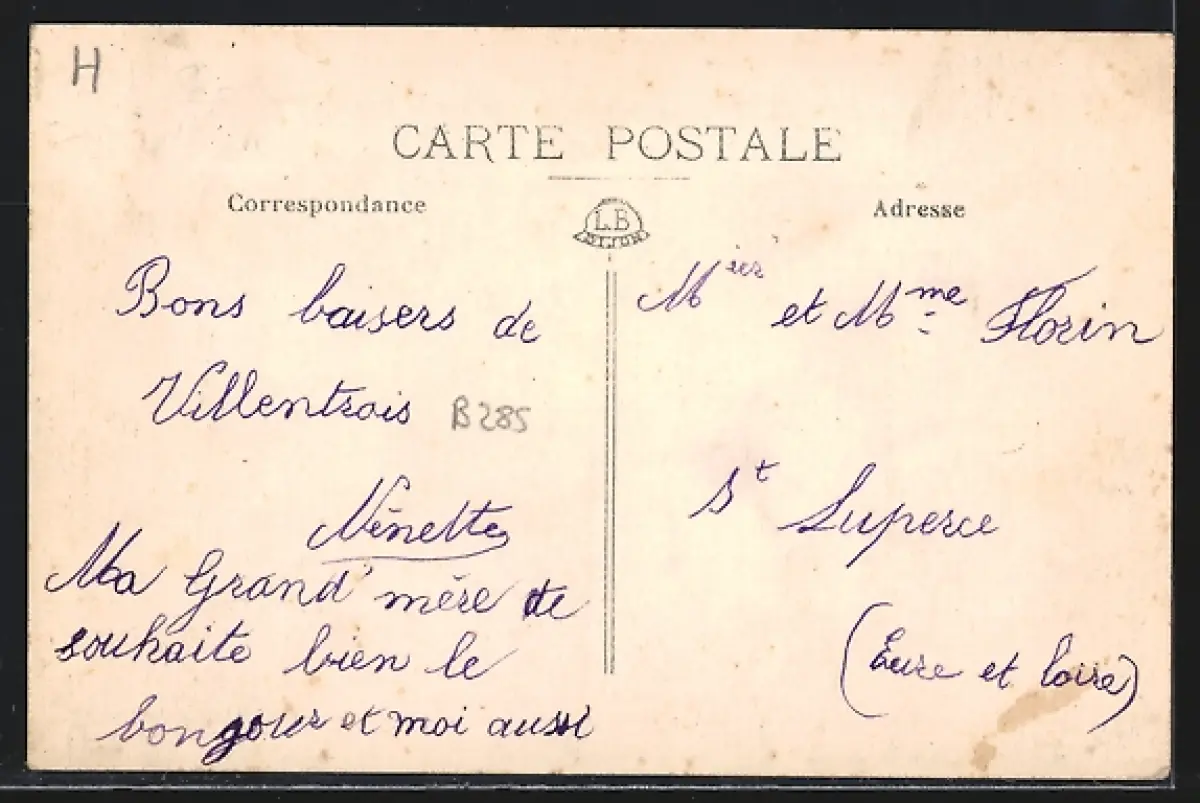 H
CARTE POSTALE
Correspondance
L B
DIJON
Adresse
Bons baisers de
Villentrois
B285
Nénette
Ma Grand' mère te
souhaite bien le
bongour et moi aussi
M et Mme Florin
St Luperce
(Eure et loire)